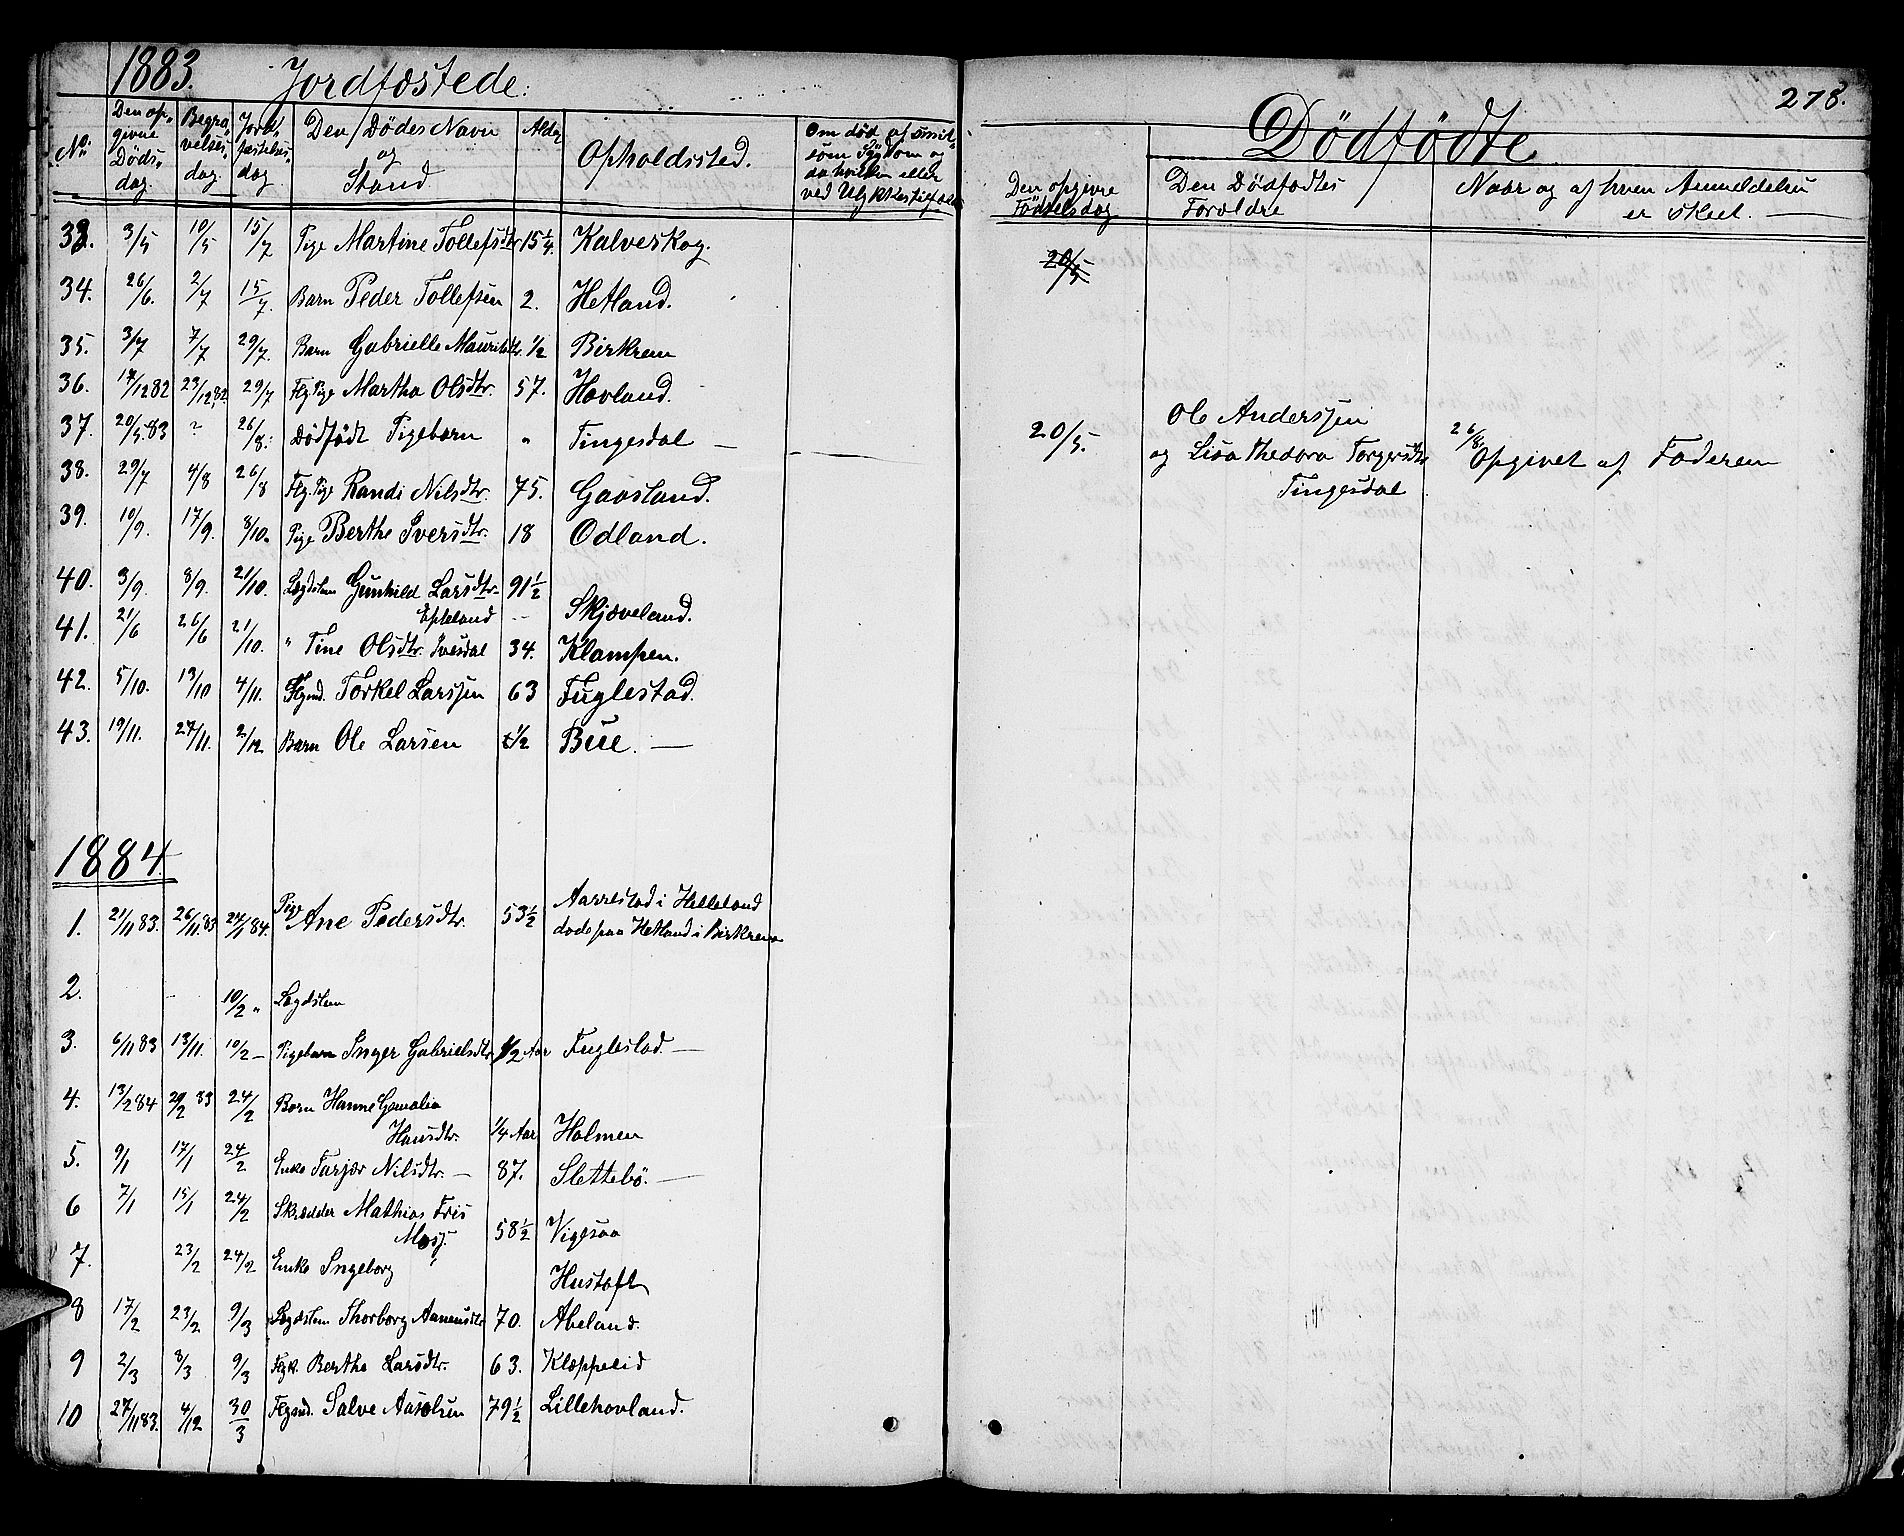 1883. Jordfæstede:
No. Den opgivne Dødsdag. Begravelsesdag. Jordfæstelsesdag Den Dødes Navn og Stand Alder Opholdssted. Om død af smitsom Sygdom og da hvilken eller ved Ulykkestilfælde
33. 3/5 10/5 15/7 Pige Martine Tollefsdtr 15 1/4. Kalveskog.
34. 26/6. 2/7 15/7. Barn Peder Tollefsen 2. Hetland.
35. 3/7 7/7 29/7. Barn Gabrielle Mauritsdtr. 1/2 Birkrem
36. 17/12 82 23/12 82. 29/7 Flg. Pige Martha Olsdtr. 57. Hovland.
37. 20/5 83 ? 26/8. Dödfödt Pigebarn " Tingesdal —
38. 29/7 4/8 26/8 Flg. Pige Randi Nilsdtr. 75. Gaasland.
39. 10/9. 17/9. 8/10. Pige Berthe Iversdtr. 18 Odland.
40. 3/9. 8/9. 21/10. Lægdslem Gunhild Larsdtr. 91 1/2
Epteland Skjæveland.
41. 21/6 26/6 21/10. " Tine Olsdtr. Ivesdal 34. Klampen.
42. 5/10. 13/10 4/11. Flgmd. Torkel Larssen 63 Fuglestad.
43. 19/11. 27/11. 2/12 Barn Ole Larsen 1/2 Bue. —
1884.
1. 21/11 83. 26/11. 83 27/1 84. Pige Ane Pedersdtr. 53 1/2 Aarrestad i Helleland
døde paa Hetland i Birkrem
2. 10/2 " Lægdslem
3. 6/11 83 13/11. 10/2 — Pigebarn Inger Gabrielsdtr. 1/2 Aar Fuglestad. —
4. 13/2 84 20/2 83 24/2 Barn Hanne Gemalia
Hansdtr. 1/4 Aar Holmen
5. 9/1 17/1 24/2 Enke Tarjær Nilsdtr. — 87. Slettebö. —
6 7/1 15/1 24/2 Skrædder Mathias Friis
Mosj. 58 1/2 Vigesaa
7. 23/2 24/2 Enke Ingeborg Hustoft
8 17/2 23/2 9/3 Lægdslem Thorborg Aanensdtr 70. Abeland.
9 2/3 8/3 9/3 Flgk. Berthe Larsdtr. 63. Klæppelid
10 27/11 83. 4/12 30/3 Flgmd. Salve Aasolsen 79 1/2 Lillehovland.
278.
Dödfödte
Den opgivne Födselsdag Den Dödfødtes Forældre Naar og af hvem Anmeldelsen er skeet. —
20/5
20/5. Ole Anderssen
og Lisa Thedora Torgersdtr 26/8 Opgivet af Faderen
Tingesdal